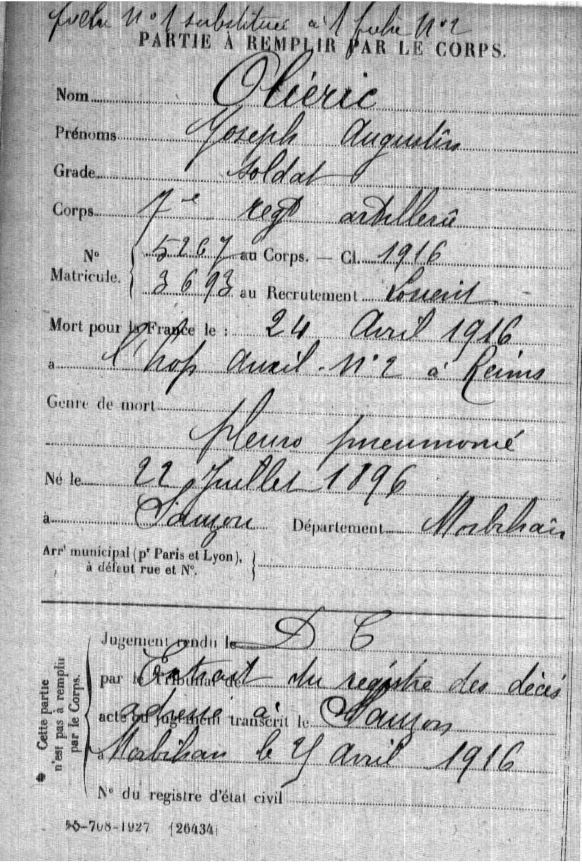 fiche N°1 substituée à 1 fiche N°2
PARTIE À REMPLIR PAR LE CORPS.
Nom Oliéric
Prénoms Joseph Augustin
Grade soldat
Corps 7e regt artillerie
N° Matricule. 5267 au Corps. — Cl. 1916
3693 au Recrutement Lorient
Mort pour la France le : 24 Avril 1916
a l'hop auxil. N°2 à Reims
Genre de mort
pleuro pneumonie
Né le 22 Juillet 1896
à Sauzon Département Morbihan
Arrt municipal (pr Paris et Lyon),
à défaut rue et N°.
Jugement rendu le D C
par le Tribunal de Extrait du registre des décès
acte ou jugement transcrit le adressé à Sauzon
à Morbihan le 25 avril 1916
N° du registre d'état civil
Cette partie
n'est pas à remplir
par le Corps.
55-708-1927 (26434)